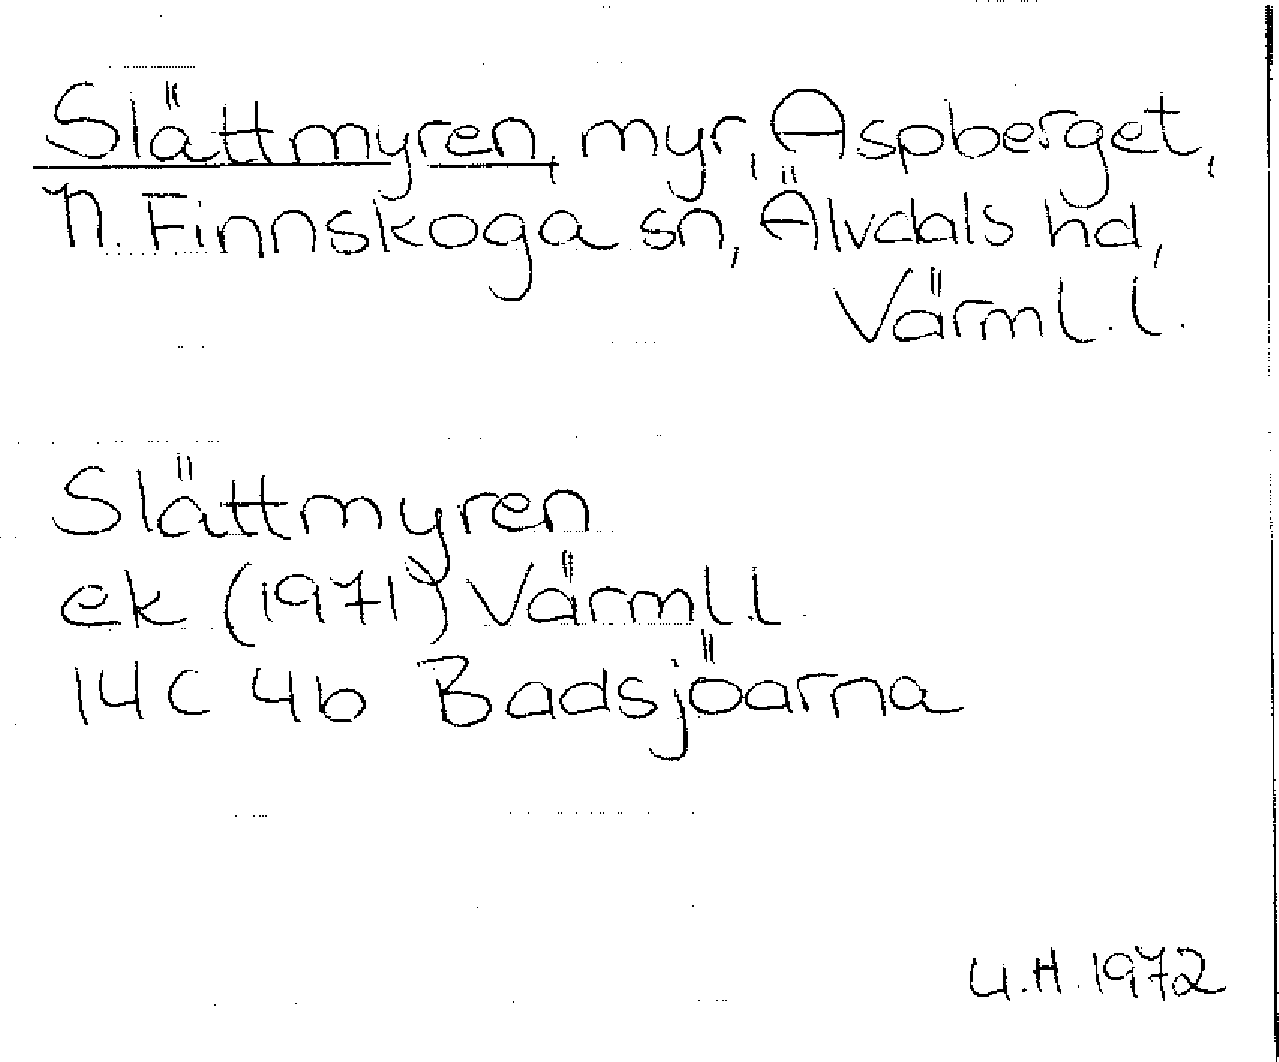 Slättmyren, myr, Aspberget,
N. Finnskoga sn, Älvdals hd,
Värml. l.
Slättmyren
ek (1971) Värml l
14C 4b Badsjöarna
U.H. 1972